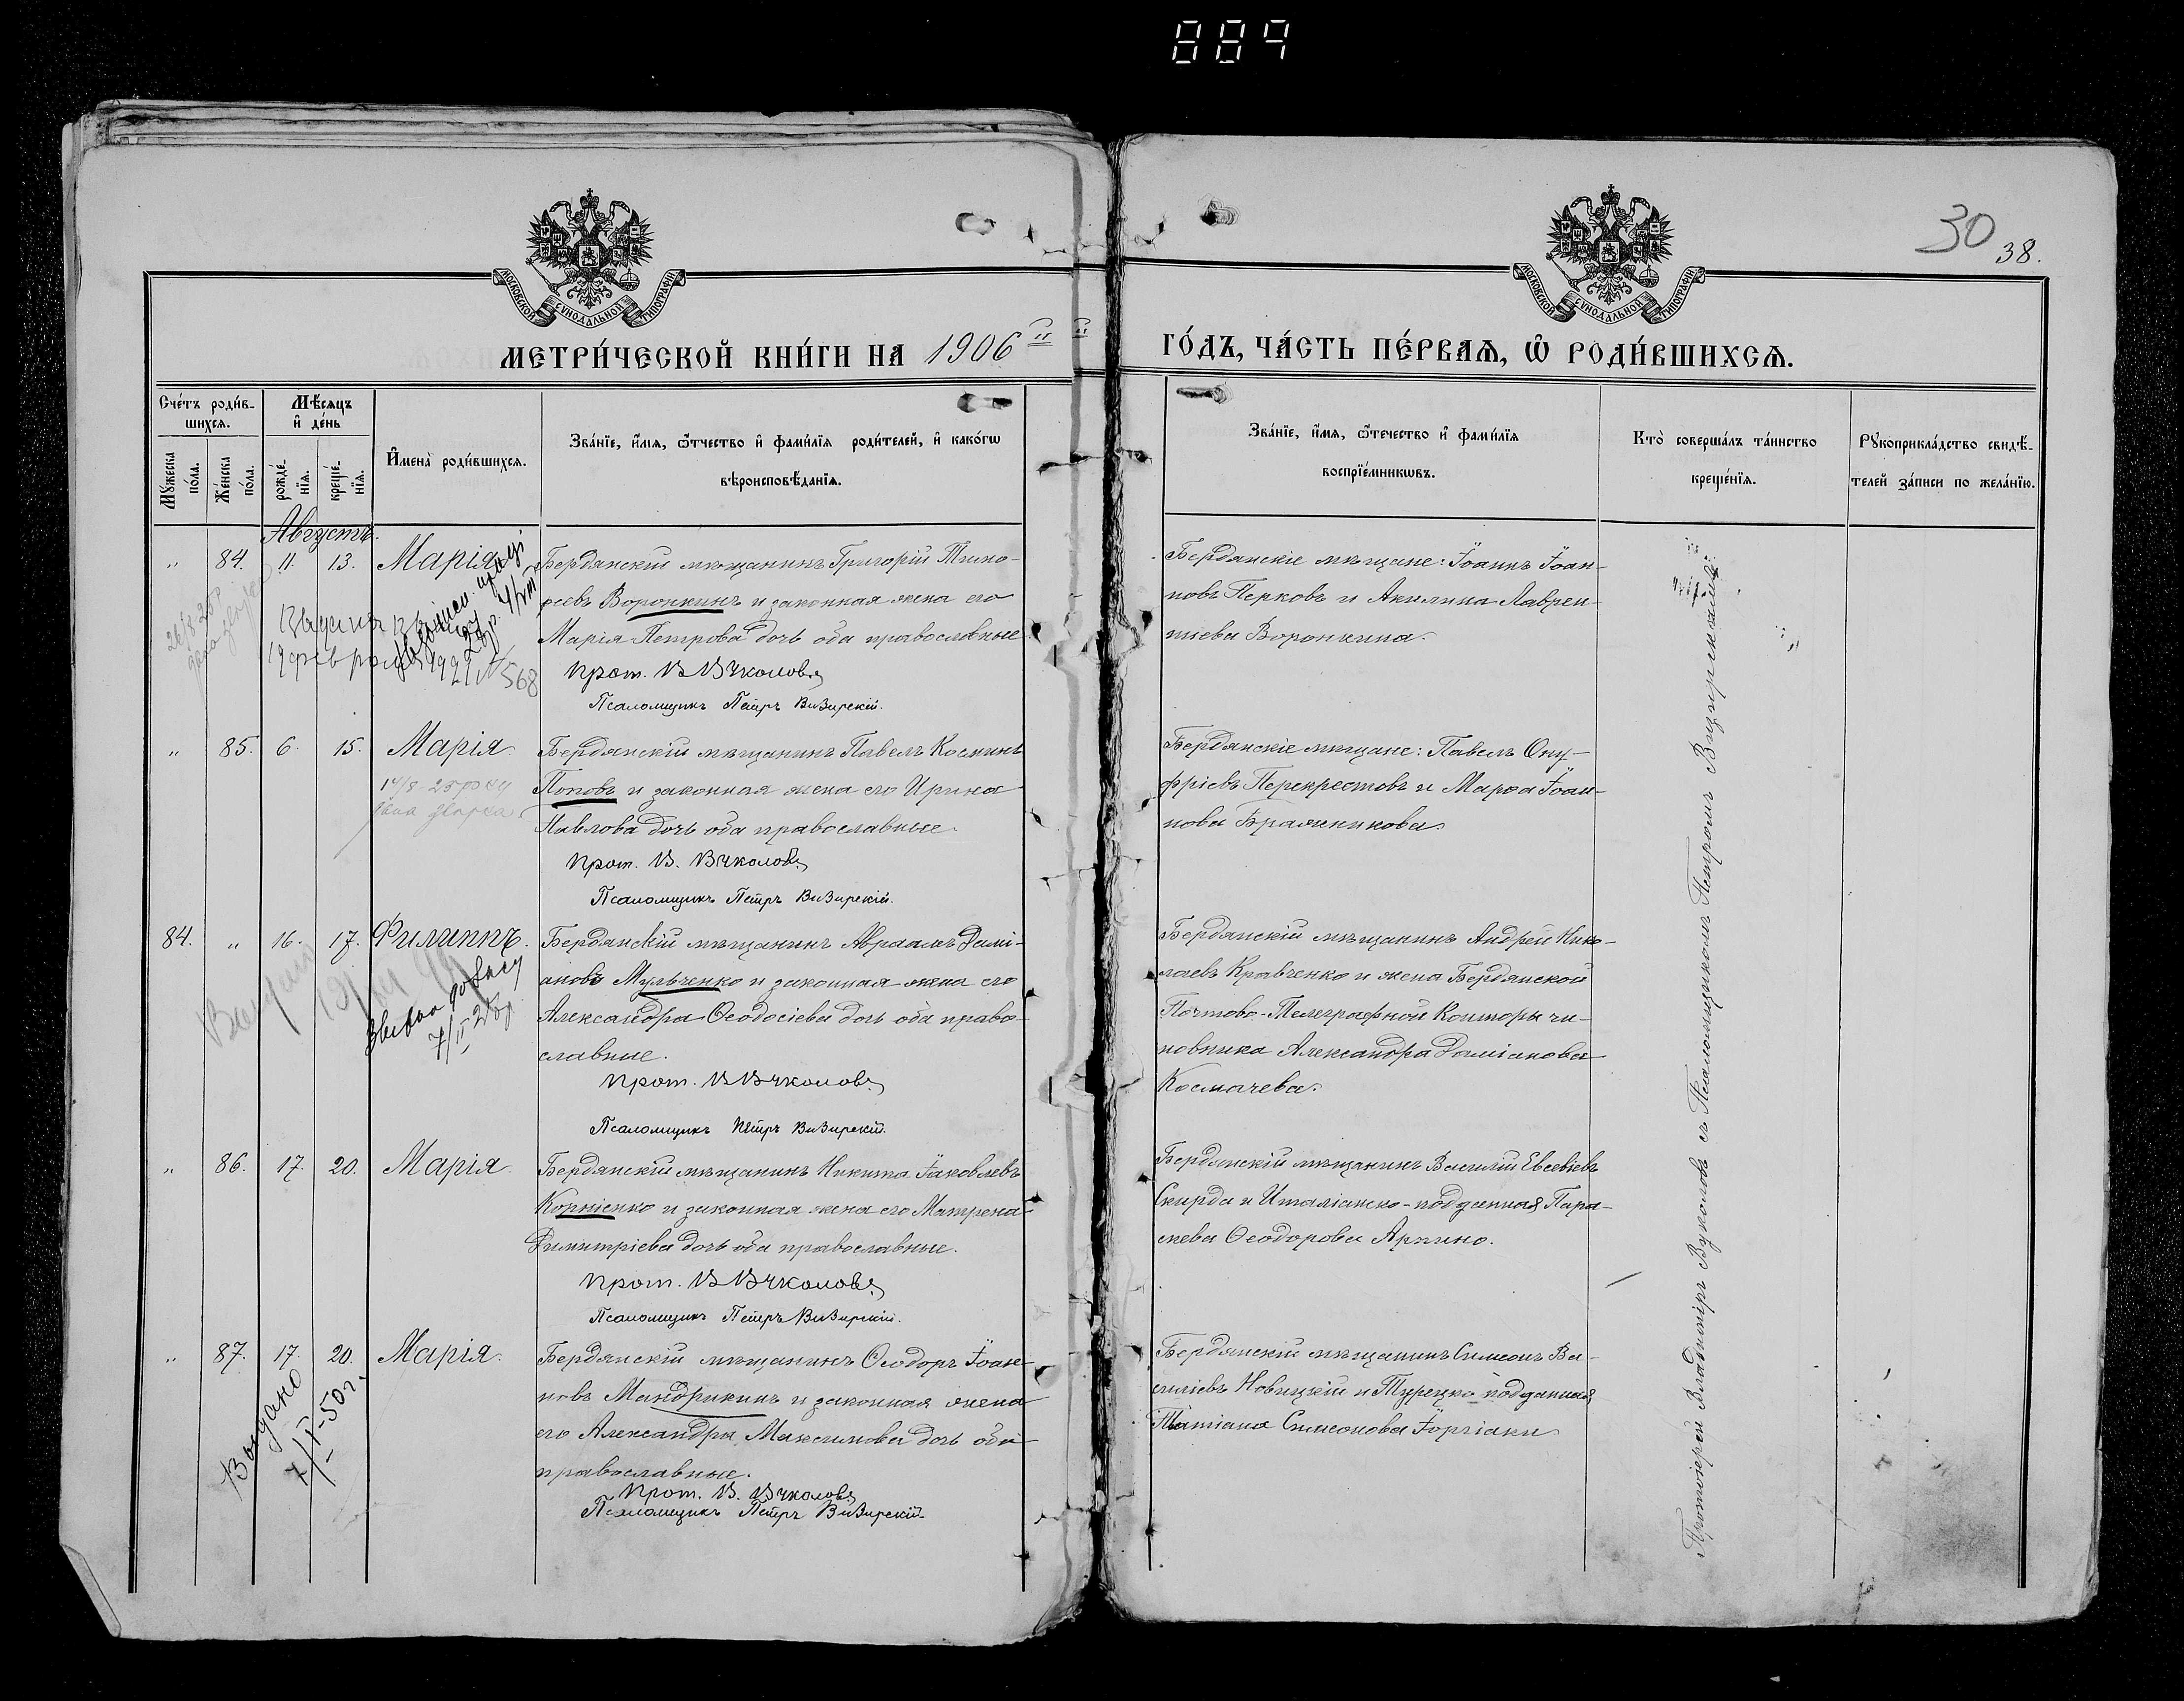 889
30
38.
МОСКОВСКОЙ СѴНОДАЛЬНОЙ ТИПОГРАФІИ
МОСКОВСКОЙ СѴНОДАЛЬНОЙ ТИПОГРАФІИ
МЕТРИ́ЧЕСКОЙ КНИ́ГИ НА 1906 й
ГО́ДЪ, ЧА́СТЬ ПЕ́РВАѦ, Ѡ҆ РОДИ́ВШИХСѦ.
Сче́тъ роди́в-
шихсѧ.
Мѣ́сѧцъ
и҆ де́нь
Мꙋ́жеска по́ла.
Же́нска по́ла.
рожде́-
нїѧ.
креще́-
нїѧ.
И҆мена̀ роди́вшихсѧ.
Зва́нїе, и҆́мѧ, ѻ҆́тчество и҆ фами́лїѧ роди́телей, и҆ како́гѡ
вѣроисповѣ́данїѧ.
Зва́нїе, и҆́мѧ, ѻ҆те́чество и҆ фами́лїѧ
воспрїе́мникѡвъ.
Кто̀ соверша́лъ та́инство
креще́нїѧ.
Рꙋкоприкла́дство свидѣ́-
телей за́писи по жела́нїю.
Августъ.
" 84. 11. 13. Марія
Бердянскій мѣщанинъ Григорій Тимо-
ѳеевъ Воронкинъ и законная жена его
Марія Петрова дочь оба православные
Прот. В Вуколовъ
Псаломщикъ Петръ Визирскій.
Бердянскіе мѣщане: Іоаннъ Іоан-
новъ Перковъ и Акилина Лаврен-
тіева Воронкина.
" 85. 6. 15. Марія
14/8 25 року
дана
Бердянскій мѣщанинъ Павелъ Косминъ
Поповъ и законная жена его Ирина
Павлова дочь оба православные.
Прот. В. Вуколовъ
Псаломщикъ Петръ Визирскій.
Бердянскіе мѣщане: Павелъ Ону-
фріевъ Перекрестовъ и Марѳа Іоан-
нова Бражникова.
84. " 16. 17. Филиппъ.
Бердянскій мѣщанинъ Авраамъ Дамі-
ановъ Мульченко и законная жена его
Александра Ѳеодосіева дочь оба право-
славные.
Прот. В Вуколовъ
Псаломщикъ Петръ Визирскій.
Бердянскій мѣщанинъ Андрей Нико-
лаевъ Кравченко и жена Бердянской
Почтово-Телеграфной Конторы чи-
новника Александра Даміанова
Космачева.
" 86. 17. 20. Марія.
Бердянскій мѣщанинъ Никита Іаковлевъ
Корніенко и законная жена его Матрена
Димитріева дочь оба православные.
Прот. В Вуколовъ
Псаломщикъ Петръ Визирскій.
Бердянскій мѣщанинъ Василій Евсевіевъ
Скирда и Италіанско-подданная Пара-
скева Ѳеодорова Арпино.
" 87. 17. 20. Марія.
Выдано
7/I-50 г.
Бердянскій мѣщанинъ Ѳеодоръ Іоан-
новъ Мандрикинъ и законная жена
его Александра Максимова дочь оба
православные.
Прот. В. Вуколовъ
Псаломщикъ Петръ Визирскій
Бердянскій мѣщанинъ Симеонъ Ва-
силіевъ Новицкій и Турецко подданная
Татіана Симеонова
Протоіерей Владиміръ Вуколовъ съ Псаломщикомъ Петромъ Визирскимъ.